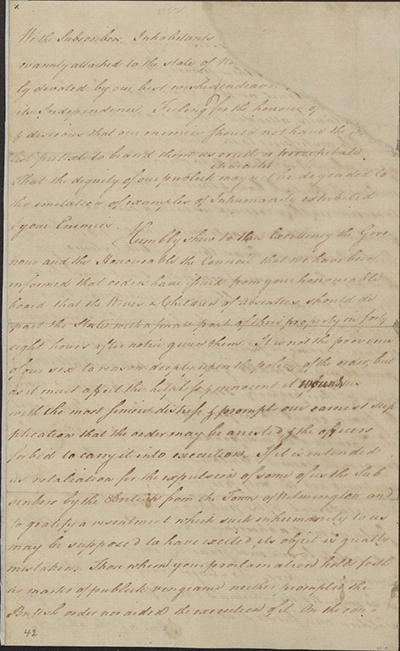 We the Subscribers Inhabitants
warmly attached to the state of No
ly devoted by our best wishes & endeavors
its Independence. Feeling for the honour of
& desirous that our enemies should not have the
least pretext to brand them as cruel or
character
That the dignity of our publick may not be degraded to
the imitation of examples of Inhumanity exhibited
your Enemies.
Humbly shew to the Excellency the Gover
nour and the Honourable the Council that we have been
informed that orders have issued from your honourable
board that the Wives & Children of absentees should de
part the State with a small part of their property in forty
eight hours after notice given them. It is not the province
of our sex to reason deeply upon the policy of the order, but
as it must affect the helpless & innocent it wounds us
with the most sincere distress & prompts our earnest sup
plication that the order may be arrested & the officers
forbid to carry it into execution. If it is intended
as retaliation for the expulsion of some of us the Sub
scribers by the British from the Town of Wilmington and
to gratify a resentment which such inhumanity to us
may be supposed to have excited, its object is greatly
mistaken. Those whom your proclamation holds forth
as marks of publick vengeance neither prompted the
British order nor aided the execution of it. On the con
42